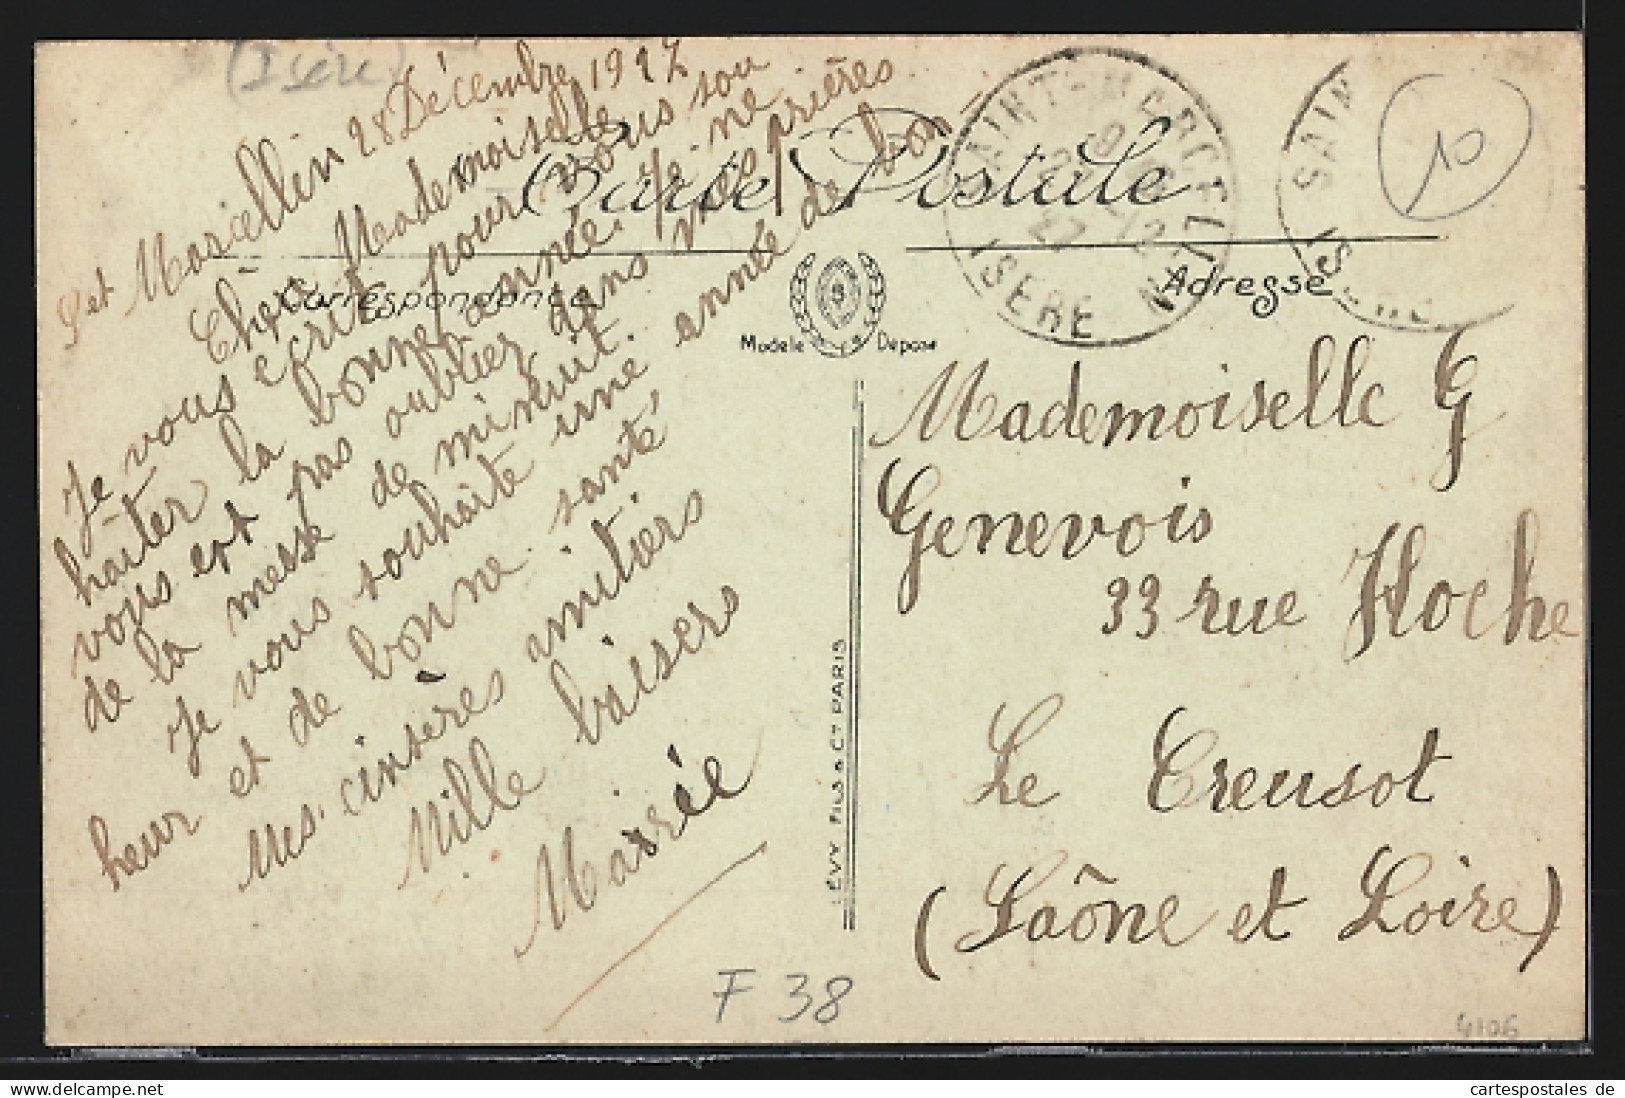 (Isère)
St Marcellin 28 Décembre 1927
Chère Mademoiselle
Je vous écrit pour vous sou
haiter la bonne année. Je ne
vous est pas oublier dans mes prières
de la messe de minuit.
Je vous souhaite une année de bon
heur et de bonne santé
Mes cinsères amitiers
Mille baisers
Marée
Carte Postale
Correspondance
Adresse
Modèle Déposé
SAINT-MARCELLIN
12
27
ISERE
SAIN
ISERE
10
Mademoiselle G
Genevois
33 rue Hoche
Le Creusot
(Saône et Loire)
LÉVY FILS & Cie PARIS
F 38
4106
cartespostales de